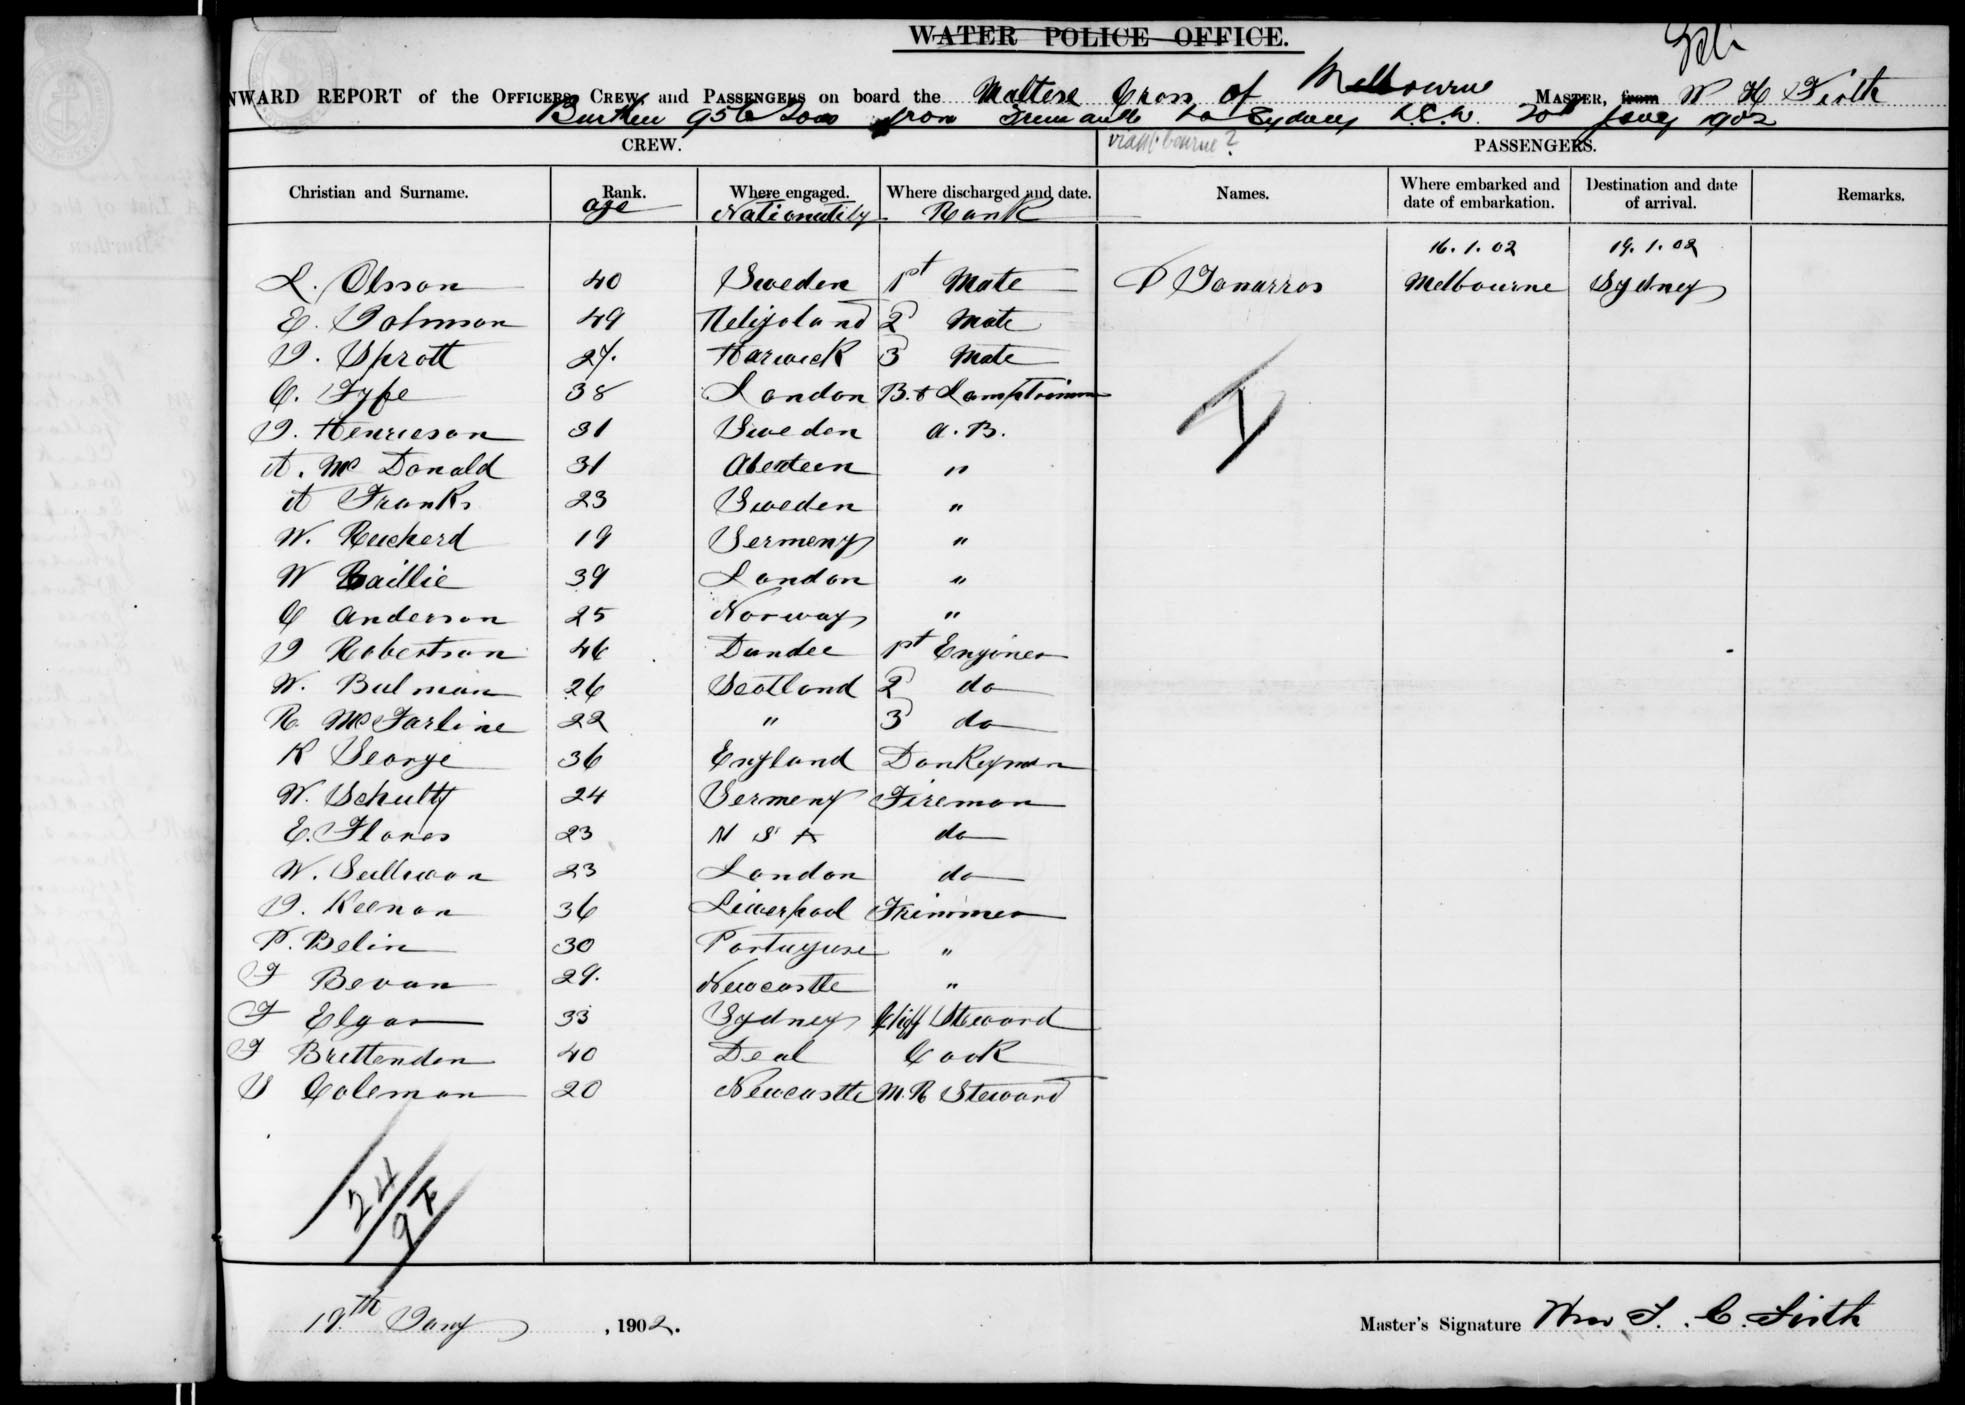 WATER POLICE OFFICE.
NWARD REPORT of the OFFICERS, CREW, and PASSENGERS on board the Maltese Cross of Melbourne MASTER, from W H Firth
Burthen 956 Tons from Fremantle to Sydney N.S.W. 20th Jany 1902
CREW. PASSENGERS.
Christian and Surname. Rank. Where engaged. Where discharged and date. Names. Where embarked and date of embarkation. Destination and date of arrival. Remarks.
age Nationality Rank
16.1.02 19.1.02
L. Olsson 40 Sweden 1st Mate Melbourne Sydney
E. Johnson 49 Heligoland 2 Mate
J. Sprott 27. Harwick 3 Mate
C. Fyfe 38 London B. & Lamptrimm
J. Henricson 31 Sweden A.B.
A. Mc Donald 31 Aberdeen "
A Franks 23 Sweden "
W. Ruckerd 19 Germeny "
W Baillie 39 London "
C Anderson 25 Norway "
J Robertson 46 Dundee 1st Enginer
W. Bulman 26 Scotland 2 do
R. McFarline 22 " 3 do
K George 36 England Donkeyman
W. Schultz 24 Germeny Fireman
E. Flores 23 do
W. Sullivan 23 London do
J. Keenan 36 Liverpool Trimmer
P. Belin 30 Portuguse "
F Bevan 29. Newcastle "
F Elgar 33 Sydney Chief Steward
F Brettenden 40 Deal Cook
G Coleman 20 Newcastle M.R Steward
24
19th Jany , 1902. Master's Signature Wm F. C. Firth